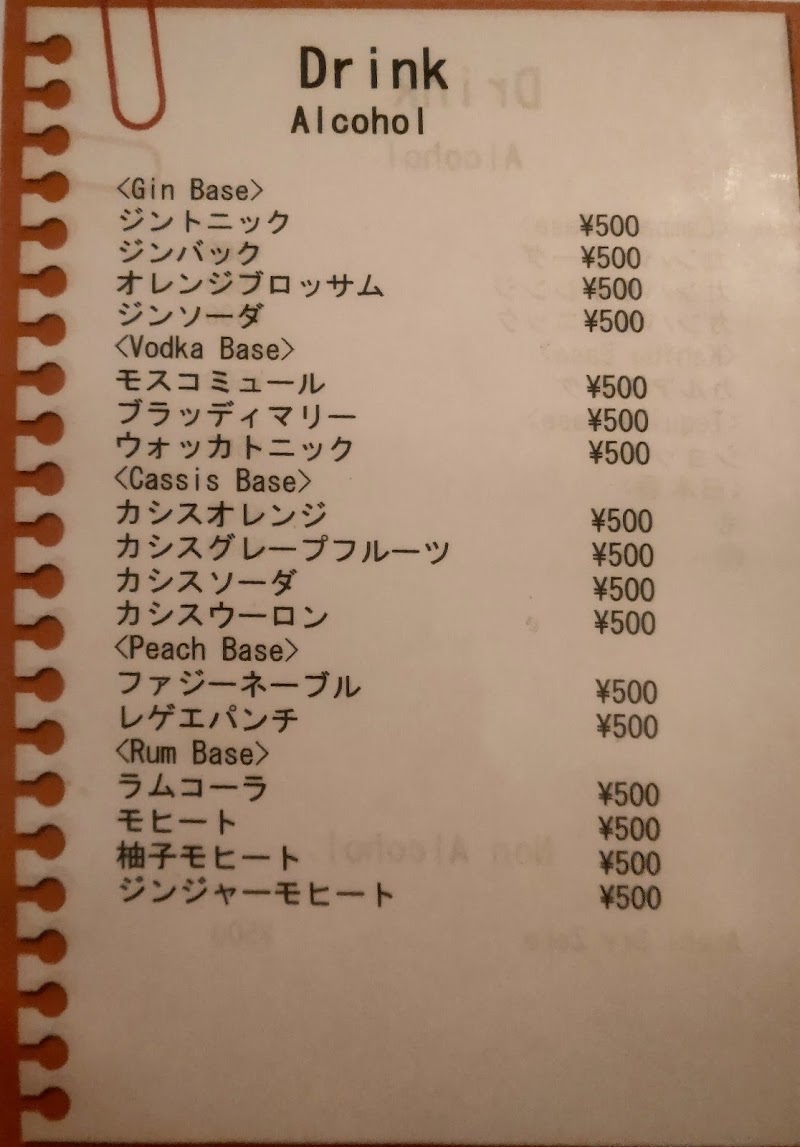 Drink
Alcohol
<Gin Base>
ジントニック ¥500
ジンバック ¥500
オレンジブロッサム ¥500
ジンソーダ ¥500
<Vodka Base>
モスコミュール ¥500
ブラッディマリー ¥500
ウォッカトニック ¥500
<Cassis Base>
カシスオレンジ ¥500
カシスグレープフルーツ ¥500
カシスソーダ ¥500
カシスウーロン ¥500
<Peach Base>
ファジーネーブル ¥500
レゲエパンチ ¥500
<Rum Base>
ラムコーラ ¥500
モヒート ¥500
柚子モヒート ¥500
ジンジャーモヒート ¥500